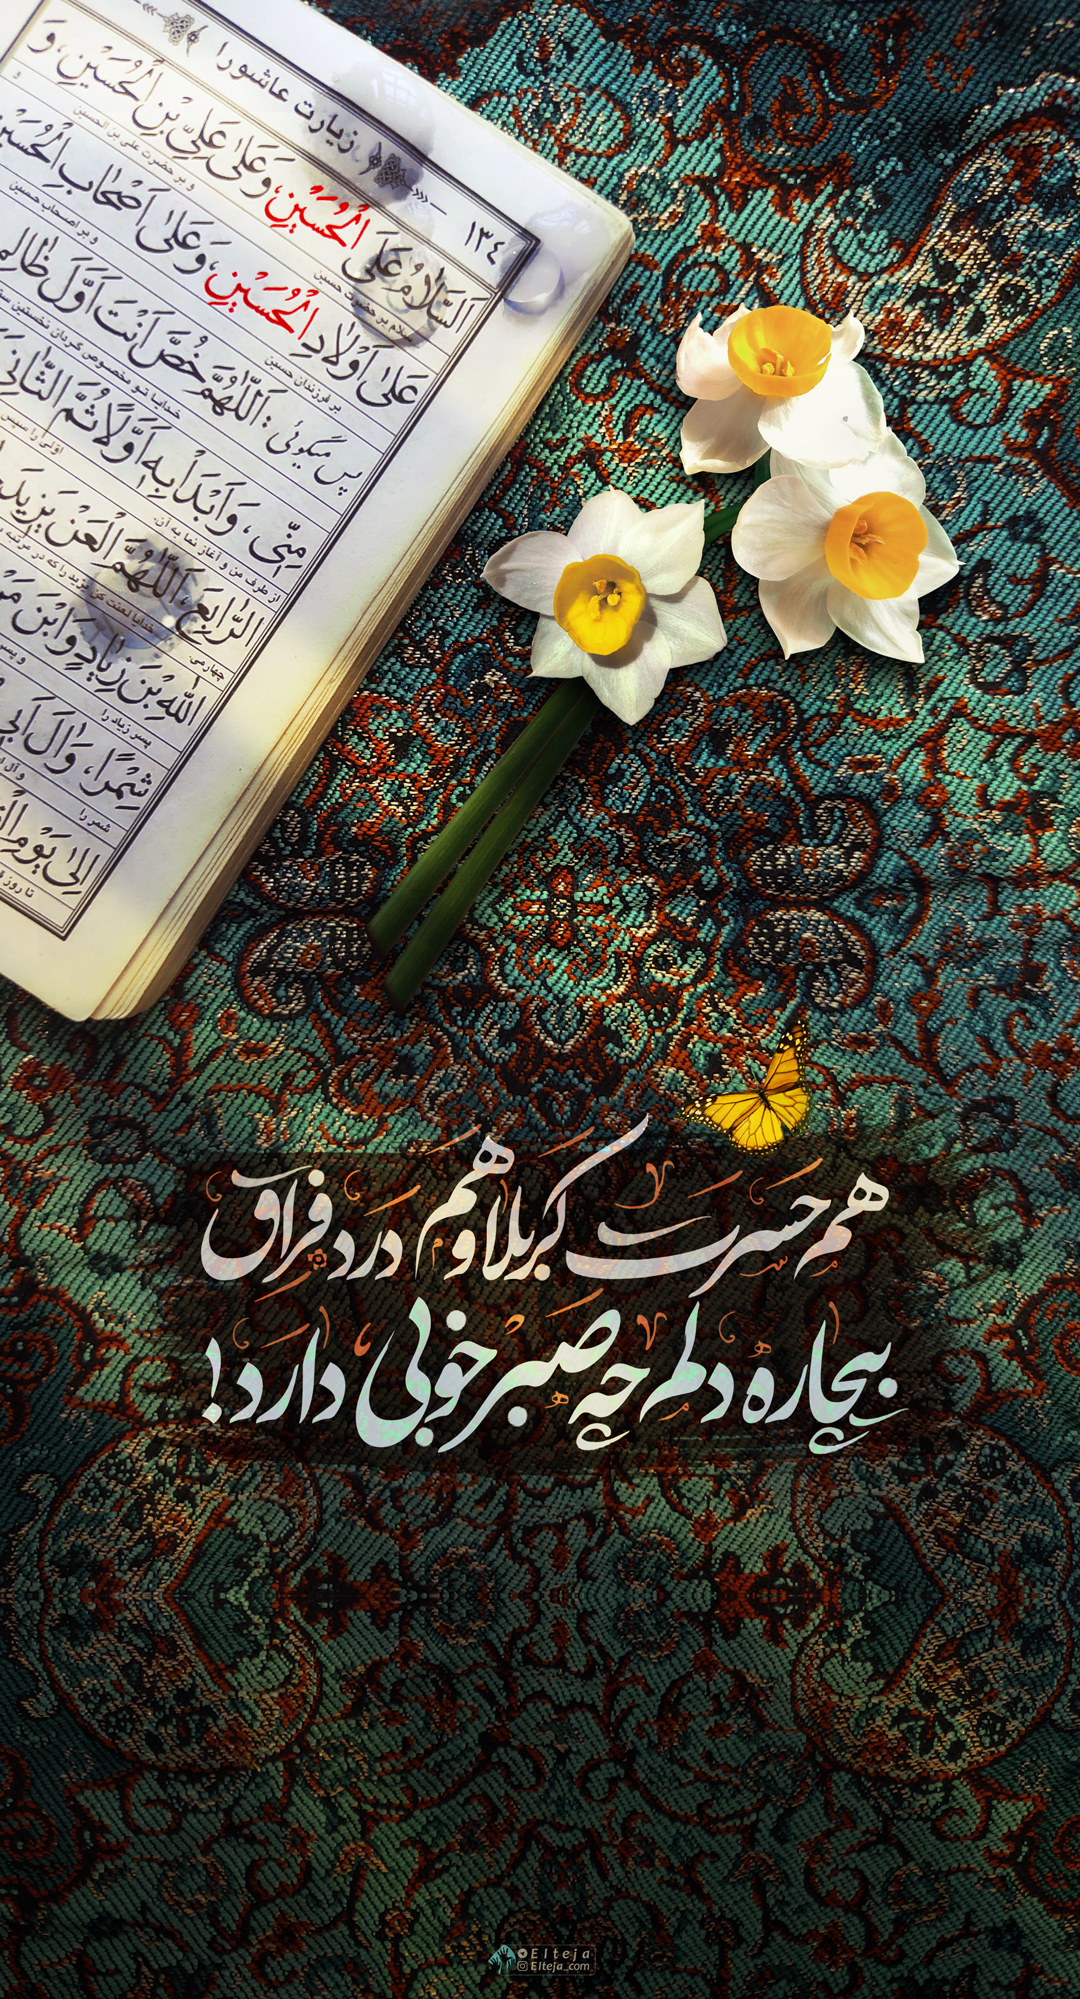 زیارت عاشورا
۱۳٤
اَلسَّلامُ عَلَی الْحُسَیْنِ، وَعَلیٰ عَلِیِّ بْنِ الْحُسَیْنِ، وَ
سلام بر حضرت حسین و بر حضرت علی بن الحسین و
عَلیٰ اَوْلادِ الْحُسَیْنِ، وَعَلیٰ اَصْحابِ الْحُسَیْنِ
بر فرزندان حسین و بر اصحاب حسین
پس میگوئی: اَللّٰهُمَّ خُصَّ اَنْتَ اَوَّلَ ظالِمٍ
خدایا تو مخصوص گردان نخستین
مِنّی، وَابْدَأْ بِهِ اَوَّلًا ثُمَّ الثّانِیَ
از طرف من و آغاز نما به آن اوّلی را سپس
الرّابِعَ، اَللّٰهُمَّ الْعَنْ یَزیدَ
چهارمی. خدایا لعنت کن یزید را که در مرتبه
اللّٰهِ بْنَ زِیادٍ وَابْنَ
پسر زیاد را و پسر
شِمْرًا، وَآلَ اَبی
شمر را و آل
اِلیٰ یَوْمِ
تا روز
هم حسرت کربلا و هم درد فراق
بیچاره دلم چه صبر خوبی دارد!
Elteja
Elteja_com